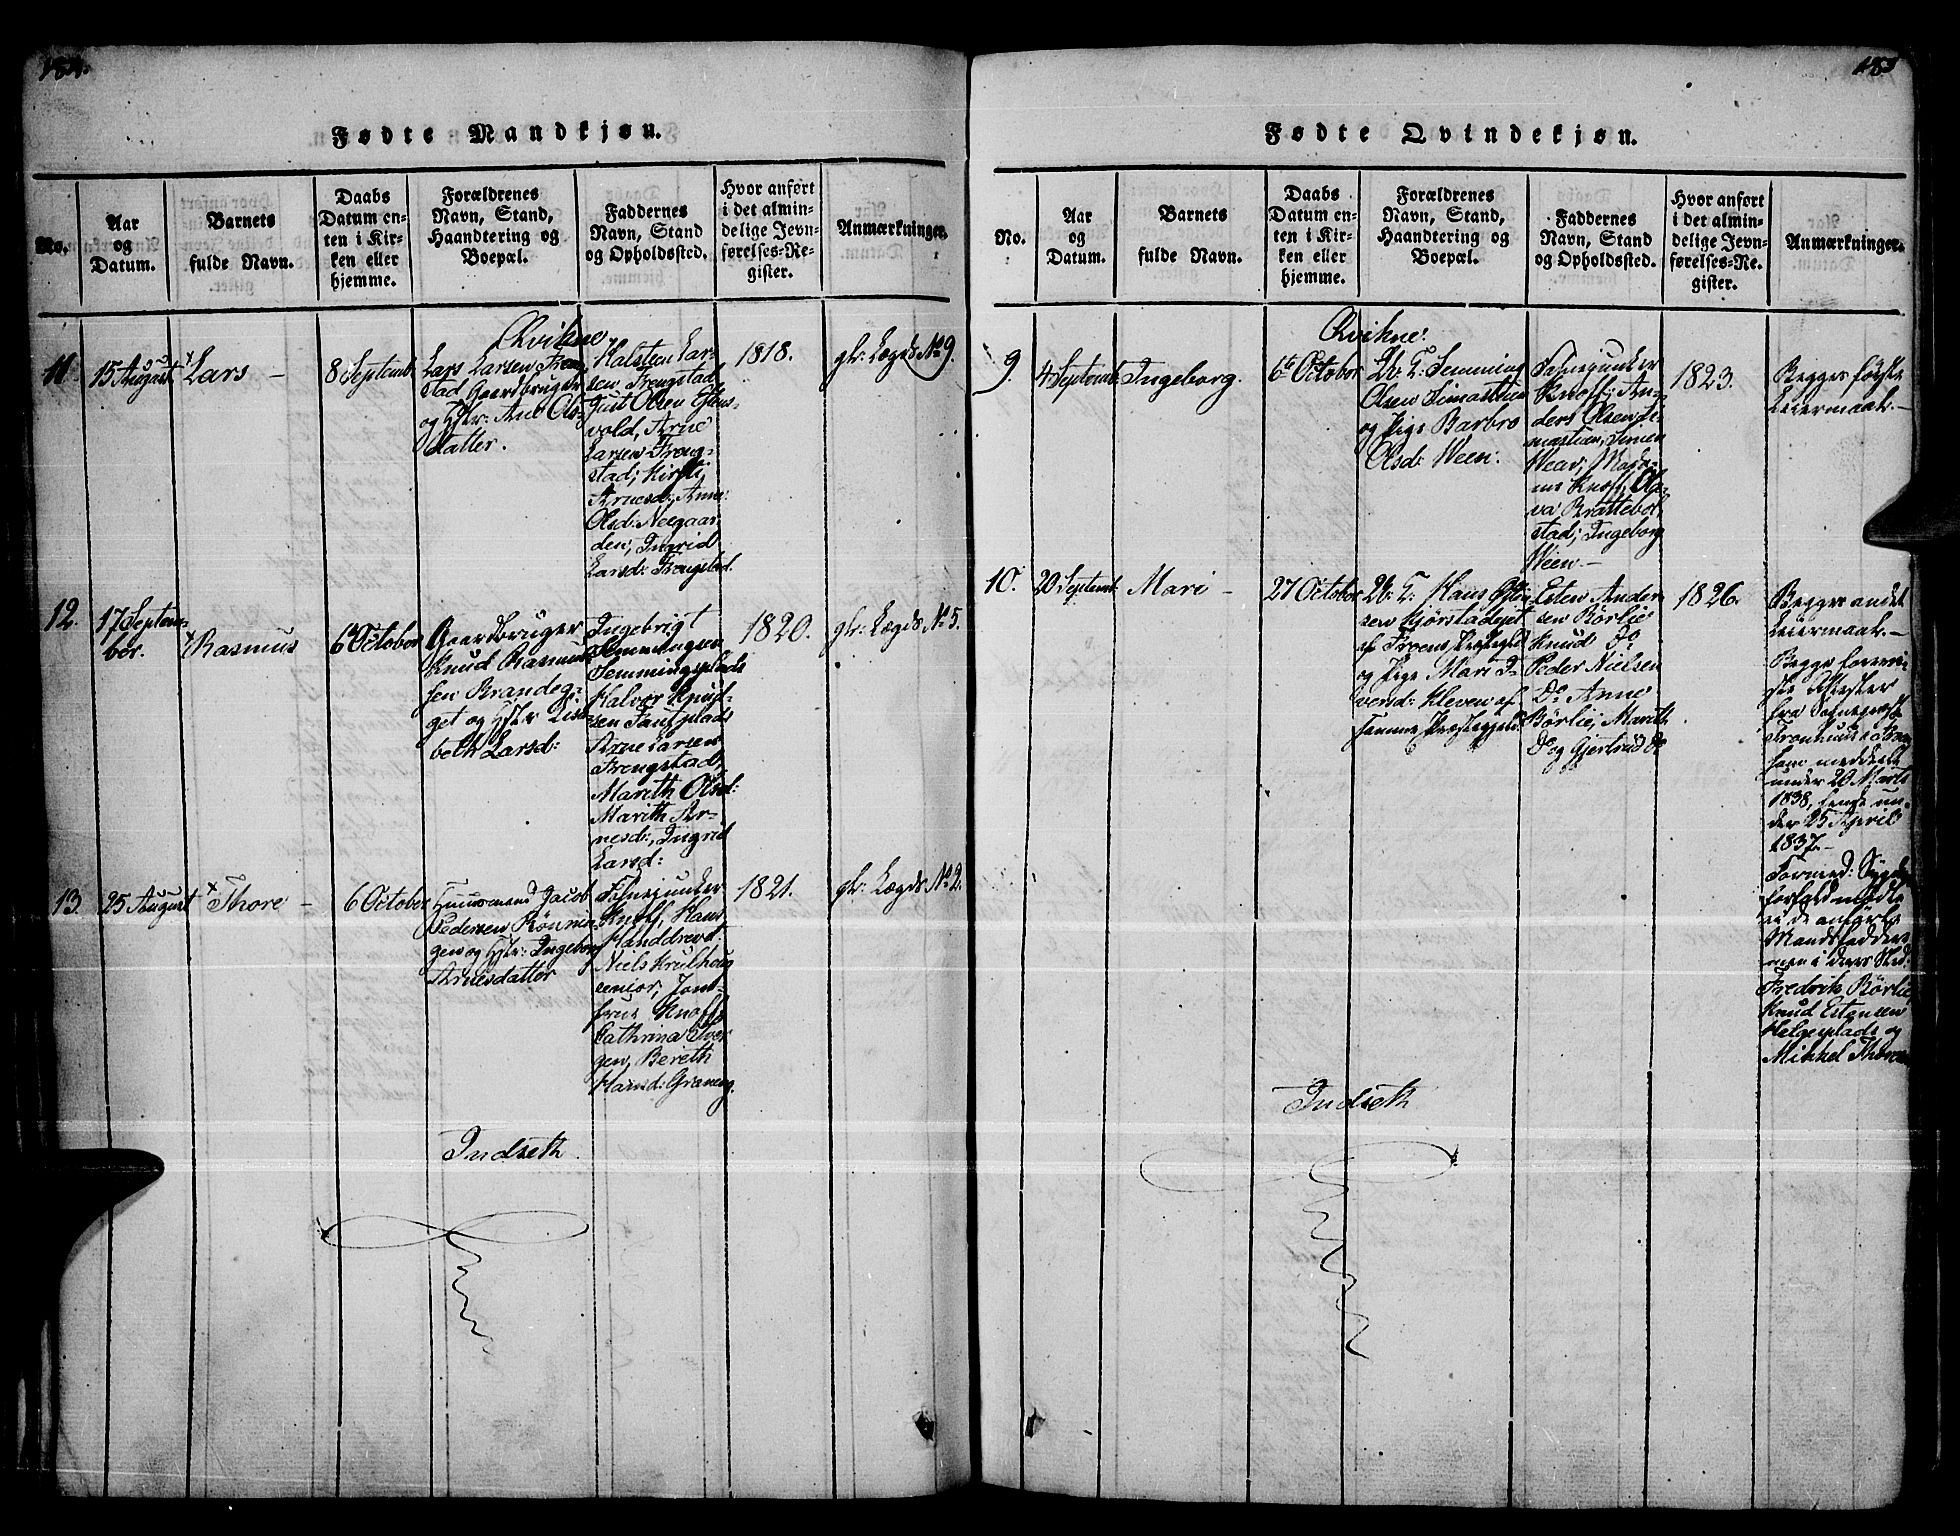 184.
Fødte Mandkjøn.
No.
Aar
og
Datum.
Barnets
fulde Navn.
Daabs
Datum en-
ten i Kir-
ken eller
hjemme.
Forældrenes
Navn, Stand,
Haandtering og
Boepæl.
Faddernes
Navn, Stand
og Opholdssted.
Hvor anført
i det almin-
delige Jevn-
førelses-Re-
gister.
Anmærkninger.
Qvikne
11.
15 August
Lars –
8 Septemb.
Lars Larsen Fren
stad Gaardbruger
og Hstr: Ane Ols-
datter.
Halsteen Lar-
sen Frengstad
Just Olsen Estens-
vold, Arne
Larsen Freng-
stad, Kirsti
Arnesd:, Anne
Olsd: Neegaar-
den, Ingrid
Larsd: Frengstad.
1818.
gbr: Lægds No 9.
12.
17 Septem-
ber.
Rasmus
6 October
Gaardbruger
Knud Rasmus-
sen Brandeg-
get og Hstr Lis-
beth Larsd:
Ingebrigt
Semmingsen
Semmingsplads
Halvor Knud-
sen
Arne Larsen
Frengstad,
Marith Olsd:
Marith Ar-
nesd:, Ingrid
Larsd:
1820.
gbr: Lægds No 5.
13.
25 August
Thore –
6 October
Huusmand Jacob
Pedersen Rønnin-
gen og Hstr: Ingeborg
Arnesdatter
Fahnejunker
Knoff, Hans
Handdrevet
Niels Krulhoug
senior, Jom-
frue Knoff
Cathrina Tver
gen, Bereth
Hansd: Graneng.
1821.
gbr: Lægds No 2.
Indseth.
185
Fødte Qvindekjøn.
No.
Aar
og
Datum.
Barnets
fulde Navn.
Daabs
Datum en-
ten i Kir-
ken eller
hjemme.
Forældrenes
Navn, Stand,
Haandtering og
Boepæl.
Faddernes
Navn, Stand
og Opholdssted.
Hvor anført
i det almin-
delige Jevn-
førelses-Re-
gister.
Anmærkninger.
Qvikne:
9.
4 Septemb.
Ingeborg.
6te October
Ub: K: Semming
Olsen Limastuen
og Pige Barbro
Olsd: Ween.
Fahnejunker
Knoff, An-
ders Olsen Li-
mastuen, Simen
Ween, Mada-
me Knoff, Ol-
va Brattebor
stad, Ingeborg
Ween –
1823.
Begges første
Leiermaal. –
10.
20 Septemb.
Mari –
27 October
Ub: K: Hans Esten
sen Kjørstadejet
af Froens Præstegjeld
og Pige Mari I-
versd: Kleven af
samme Præstegjeld.
Esten Ander
sen Børlie
Knud Do
Peder Nielsen
Do Anne
Børlie, Marith
Do og Gjertrud Do
1826.
Begges andet
Leiermaal. –
Begge
Attester
fra Sognepræst
som meddeelt
under 20 Marts
1838, sendt un-
der 25 April
1837. –
Formed: Syg-
forfald mødte
ei de anførte
Mandsfaddere
men i deres Sted
Fredrik Børlie,
Knud Estensen
Helgesplads og
Mikkel Thores
Indseth